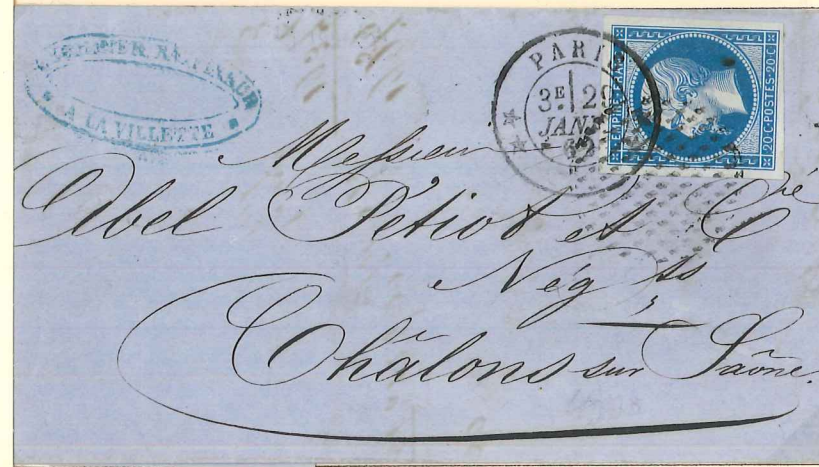 A LA VILLETTE
PARIS
3E 29
JANV
62
EMPIRE FRANC
20 C POSTES 20 C
Messieurs
Abel Petiot et Cie
Négts
Châlons sur Saône.